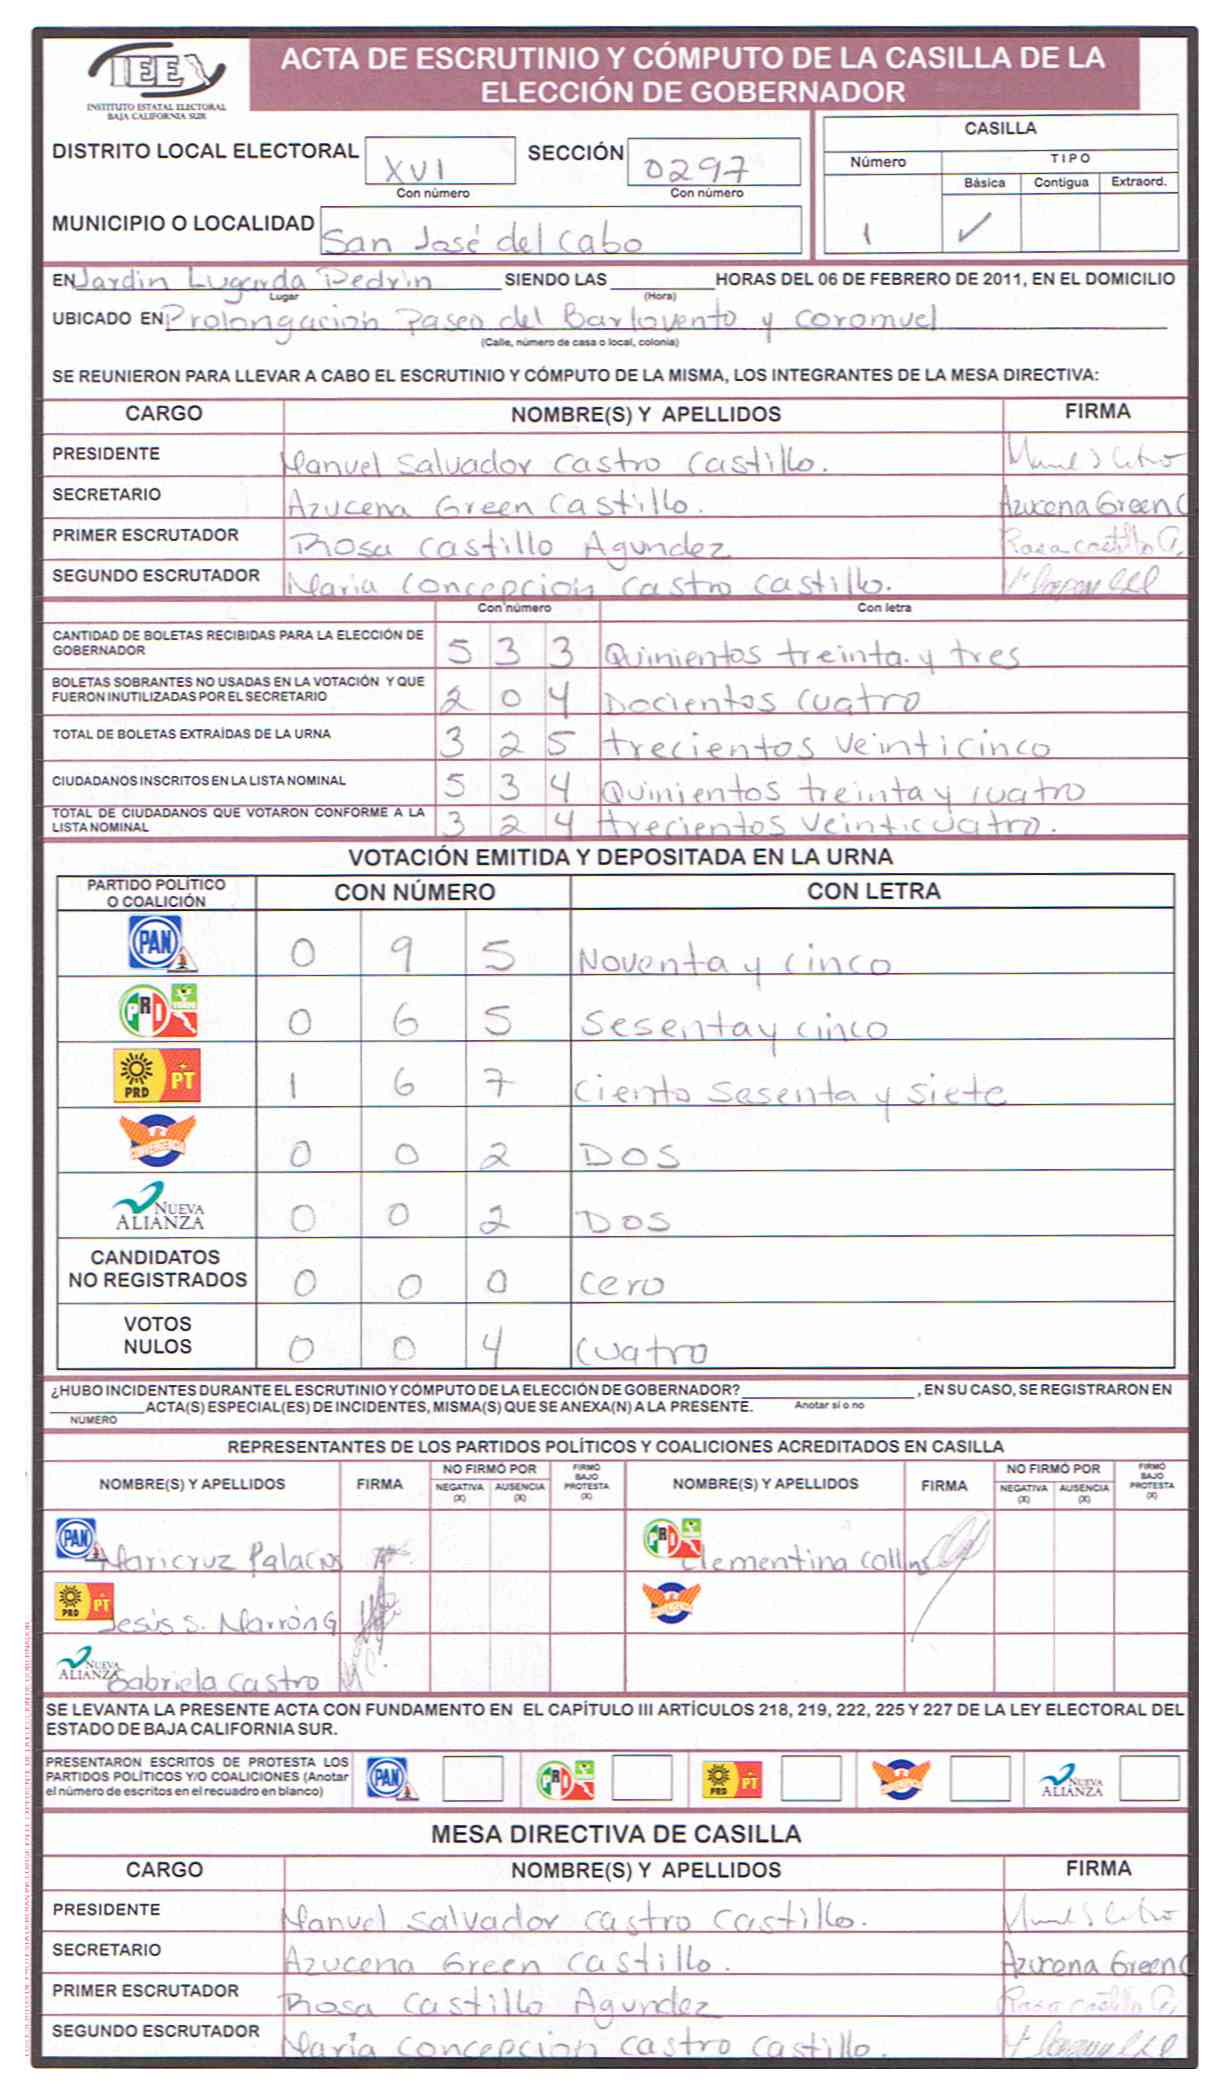 IEE
INSTITUTO ESTATAL ELECTORAL
BAJA CALIFORNIA SUR
ACTA DE ESCRUTINIO Y CÓMPUTO DE LA CASILLA DE LA
ELECCIÓN DE GOBERNADOR
DISTRITO LOCAL ELECTORAL XVI SECCIÓN 0297
Con número Con número
MUNICIPIO O LOCALIDAD San José del Cabo
CASILLA
Número TIPO
Básica Contigua Extraord.
1 ✓
EN Jardin Lugarda Pedrin SIENDO LAS HORAS DEL 06 DE FEBRERO DE 2011, EN EL DOMICILIO
Lugar (Hora)
UBICADO EN Prolongacion Paseo del Barlovento y Coromuel
(Calle, número de casa o local, colonia)
SE REUNIERON PARA LLEVAR A CABO EL ESCRUTINIO Y CÓMPUTO DE LA MISMA, LOS INTEGRANTES DE LA MESA DIRECTIVA:
CARGO NOMBRE(S) Y APELLIDOS FIRMA
PRESIDENTE Manuel Salvador Castro Castillo.
SECRETARIO Azucena Green Castillo. Azucena Green C
PRIMER ESCRUTADOR Rosa Castillo Agundez Rosa castillo A.
SEGUNDO ESCRUTADOR Maria Concepcion Castro Castillo.
Con número Con letra
CANTIDAD DE BOLETAS RECIBIDAS PARA LA ELECCIÓN DE
GOBERNADOR 5 3 3 Quinientos treinta y tres
BOLETAS SOBRANTES NO USADAS EN LA VOTACIÓN Y QUE
FUERON INUTILIZADAS POR EL SECRETARIO 2 0 4 Docientos cuatro
TOTAL DE BOLETAS EXTRAÍDAS DE LA URNA 3 2 5 trecientos veinticinco
CIUDADANOS INSCRITOS EN LA LISTA NOMINAL 5 3 4 Quinientos treinta y cuatro
TOTAL DE CIUDADANOS QUE VOTARON CONFORME A LA
LISTA NOMINAL 3 2 4 trecientos veinticuatro.
VOTACIÓN EMITIDA Y DEPOSITADA EN LA URNA
PARTIDO POLÍTICO
O COALICIÓN CON NÚMERO CON LETRA
PAN 0 9 5 Noventa y cinco
PRI 0 6 5 Sesenta y cinco
PRD PT 1 6 7 Ciento Sesenta y Siete
CONVERGENCIA 0 0 2 DOS
NUEVA ALIANZA 0 0 2 DOS
CANDIDATOS
NO REGISTRADOS 0 0 0 Cero
VOTOS
NULOS 0 0 4 Cuatro
¿HUBO INCIDENTES DURANTE EL ESCRUTINIO Y CÓMPUTO DE LA ELECCIÓN DE GOBERNADOR? , EN SU CASO, SE REGISTRARON EN
ACTA(S) ESPECIAL(ES) DE INCIDENTES, MISMA(S) QUE SE ANEXA(N) A LA PRESENTE. Anotar sí o no
NÚMERO
REPRESENTANTES DE LOS PARTIDOS POLÍTICOS Y COALICIONES ACREDITADOS EN CASILLA
NOMBRE(S) Y APELLIDOS FIRMA NO FIRMÓ POR NEGATIVA (X) AUSENCIA (X) FIRMÓ BAJO PROTESTA (X) NOMBRE(S) Y APELLIDOS FIRMA NO FIRMÓ POR NEGATIVA (X) AUSENCIA (X) FIRMÓ BAJO PROTESTA (X)
PAN Maricruz Palacios PRI Clementina Collins
PRD PT Jesús S. Marrón G
NUEVA ALIANZA Gabriela Castro
SE LEVANTA LA PRESENTE ACTA CON FUNDAMENTO EN EL CAPÍTULO III ARTÍCULOS 218, 219, 222, 225 Y 227 DE LA LEY ELECTORAL DEL
ESTADO DE BAJA CALIFORNIA SUR.
PRESENTARON ESCRITOS DE PROTESTA LOS
PARTIDOS POLÍTICOS Y/O COALICIONES (Anotar
el número de escritos en el recuadro en blanco)
PAN PRI PRD PT NUEVA ALIANZA
MESA DIRECTIVA DE CASILLA
CARGO NOMBRE(S) Y APELLIDOS FIRMA
PRESIDENTE Manuel Salvador Castro Castillo.
SECRETARIO Azucena Green Castillo. Azucena Green C
PRIMER ESCRUTADOR Rosa Castillo Agundez Rosa castillo A.
SEGUNDO ESCRUTADOR Maria Concepcion Castro Castillo.